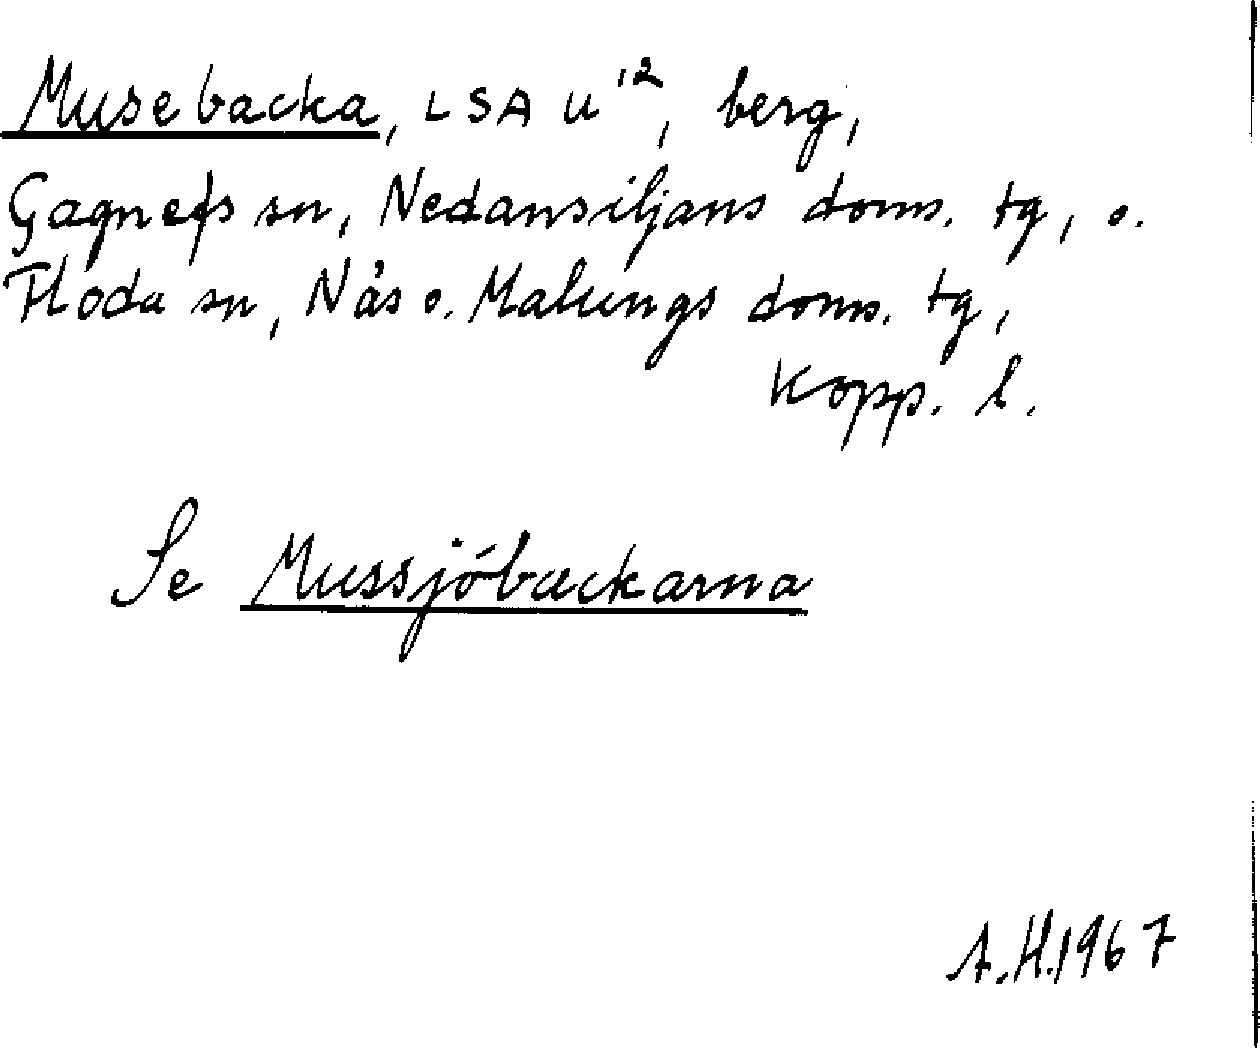 Musebacka, LSA U¹², berg,
Gagnefs sn, Nedansiljans doms. tg, o.
Floda sn, Nås o. Malungs doms. tg,
Kopp. l.
Se Mussjöbackarna
A.H.1967